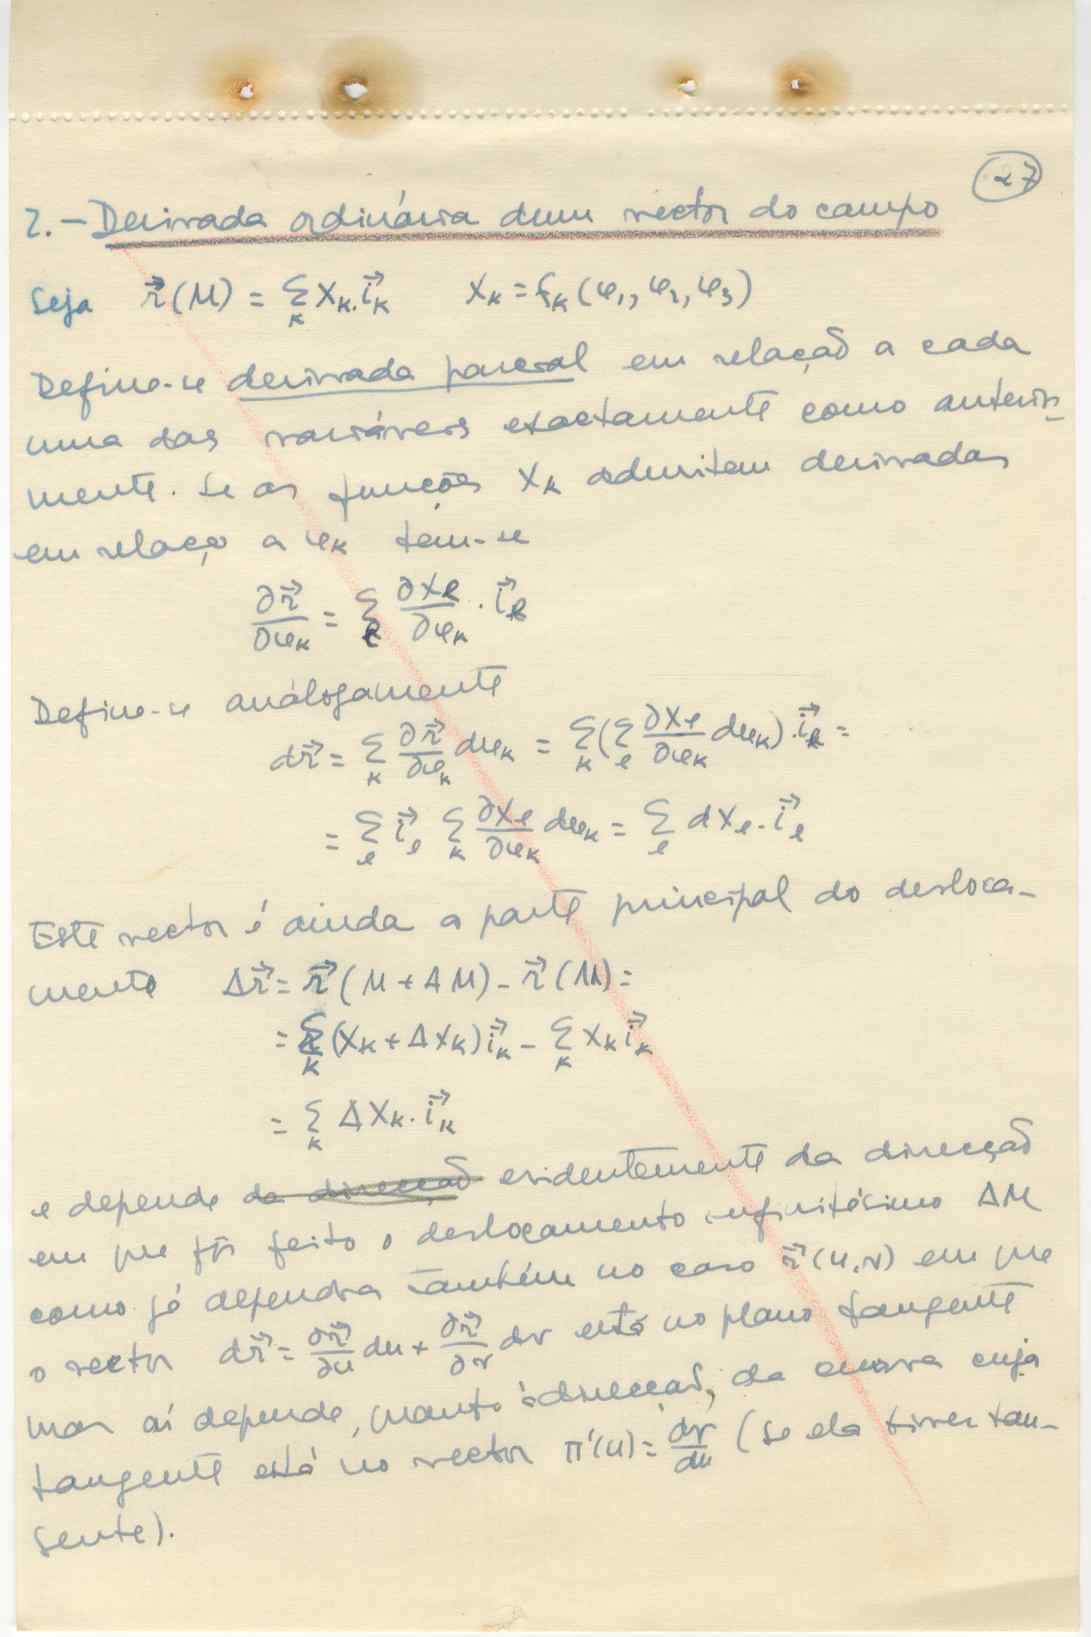 27
2. - Derivada ordinária dum vector do campo
Seja r⃗(M) = Σ_k X_k. i⃗_k    X_k = f_k(φ₁, φ₂, φ₃)
Define-se derivada parcial em relação a cada
uma das variáveis exactamente como anterior-
mente. Se as funções X_k admitem derivadas
em relaço a φ_k tem-se
∂r⃗/∂φ_k = Σ_l ∂X_l/∂φ_k . i⃗_l
Define-se análogamente
dr⃗ = Σ_k ∂r⃗/∂φ_k dφ_k = Σ_k (Σ_l ∂X_l/∂φ_k dφ_k). i⃗_l =
= Σ_l i⃗_l Σ_k ∂X_l/∂φ_k dφ_k = Σ_l dX_l. i⃗_l
Este vector é ainda a parte principal do desloca-
mento Δr⃗ = r⃗(M + ΔM) - r⃗(M) =
= Σ_k (X_k + ΔX_k) i⃗_k - Σ_k X_k i⃗_k
= Σ_k ΔX_k. i⃗_k
e depende da direcção evidentemente da direcção
em que fôr feito o deslocamento infinitésimo ΔM
como já dependia também no caso r⃗(u,v) em que
o vector dr⃗ = ∂r⃗/∂u du + ∂r⃗/∂v dv está no plano tangente
mas aí depende, quanto à direcção, da curva cuja
tangente está no vector π'(u) = dv/du (se ela tiver tan-
gente).